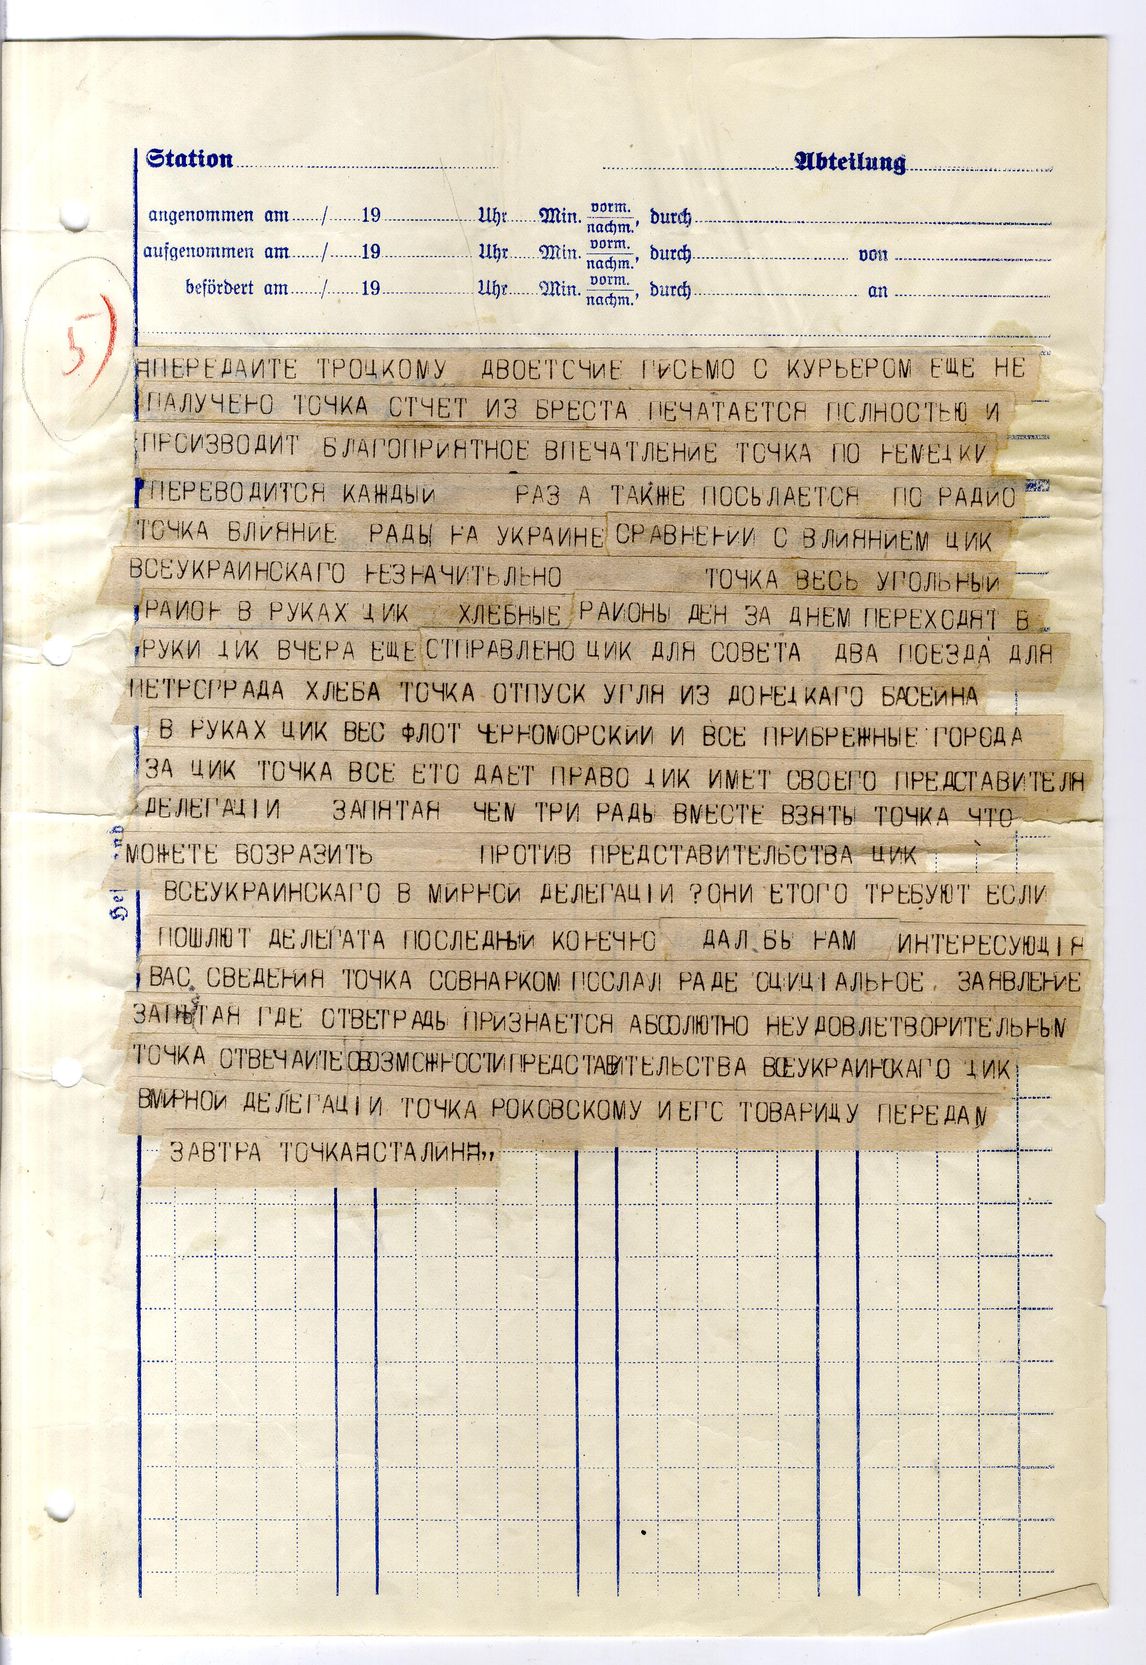 Station Abteilung
angenommen am / 19 Uhr Min. vorm./nachm., durch
aufgenommen am / 19 Uhr Min. vorm./nachm., durch von
befördert am / 19 Uhr Min. vorm./nachm., durch an
5)
ЯПЕРЕДАИТЕ ТРОЦКОМУ ДВОЕТСЧИЕ ПИСЬМО С КУРЬЕРОМ ЕЩЕ НЕ
ПАЛУЧЕНО ТОЧКА СТЧЕТ ИЗ БРЕСТА ПЕЧАТАЕТСЯ ПСЛНОСТЬЮ И
ПРОИЗВОДИТ БЛАГОПРИЯТНОЕ ВПЕЧАТЛЕНИЕ ТОЧКА ПО НЕМЕЦКИ
ПЕРЕВОДИТСЯ КАЖДЫИ РАЗ А ТАКЖЕ ПОСЫЛАЕТСЯ ПО РАДИО
ТОЧКА ВЛИЯНИЕ РАДЫ НА УКРАИНЕ СРАВНЕНИИ С ВЛИЯНИЕМ ЦИК
ВСЕУКРАИНСКАГО НЕЗНАЧИТЕЛЬНО ТОЧКА ВЕСЬ УГОЛЬНЫИ
РАИОН В РУКАХ ЦИК ХЛЕБНЫЕ РАИОНЫ ДЕН ЗА ДНЕМ ПЕРЕХОДЯТ В
РУКИ ЦИК ВЧЕРА ЕЩЕ СТПРАВЛЕНО ЦИК ДЛЯ СОВЕТА ДВА ПОЕЗДА ДЛЯ
ПЕТРСГРАДА ХЛЕБА ТОЧКА ОТПУСК УГЛЯ ИЗ ДОНЕЦКАГО БАСЕИНА
В РУКАХ ЦИК ВЕС ФЛОТ ЧЕРНОМОРСКИИ И ВСЕ ПРИБРЕЖНЫЕ ГОРОДА
ЗА ЦИК ТОЧКА ВСЕ ЕТО ДАЕТ ПРАВО ЦИК ИМЕТ СВОЕГО ПРЕДСТАВИТЕЛЯ
ДЕЛЕГАЦІИ ЗАПЯТАЯ ЧЕМ ТРИ РАДЫ ВМЕСТЕ ВЗЯТЫ ТОЧКА ЧТО
МОЖЕТЕ ВОЗРАЗИТЬ ПРОТИВ ПРЕДСТАВИТЕЛЬСТВА ЦИК
ВСЕУКРАИНСКАГО В МИРНСИ ДЕЛЕГАЦІИ ? ОНИ ЕТОГО ТРЕБУЮТ ЕСЛИ
ПОШЛЮТ ДЕЛЕГАТА ПОСЛЕДНЫИ КОНЕЧНО ДАЛ БЫ НАМ ИНТЕРЕСУЮЩІЯ
ВАС СВЕДЕНИЯ ТОЧКА СОВНАРКОМ ПОСЛАЛ РАДЕ ОЦИЦІАЛЬНОЕ ЗАЯВЛЕНИЕ
ЗАПЯТАЯ ГДЕ ОТВЕТРАДЫ ПРИЗНАЕТСЯ АБСОЛЮТНО НЕУДОВЛЕТВОРИТЕЛЬНЫМ
ТОЧКА ОТВЕЧАИТЕ ОВОЗМСЖНОСТИПРЕДСТАВИТЕЛЬСТВА ВСЕУКРАИНСКАГО ЦИК
ВМИРНОИ ДЕЛЕГАЦІИ ТОЧКА РОКОВСКОМУ И ЕГС ТОВАРИЩУ ПЕРЕДАМ
ЗАВТРА ТОЧКАЯСТАЛИНЯ,,